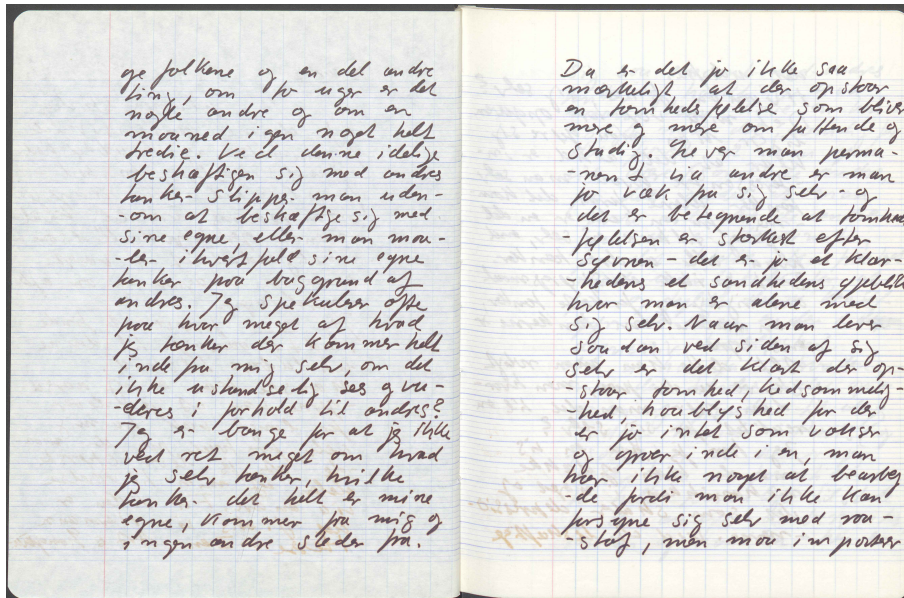 ge folkene og en del andre
ting, om to uger er det
nogle andre og om en
maaned igen noget helt
tredie. Ved denne idelige
beskæftigen sig med andres
tanker slipper man uden-
-om at beskæftige sig med
sine egne, eller man maa-
-ler ihvertfald sine egne
tanker paa baggrund af
andres. Jeg spekulerer ofte
paa hvor meget af hvad
jeg tænker der kommer helt
inde fra mig selv, om det
ikke ustandselig ses og vu-
-deres i forhold til andres?
Jeg er bange for at jeg ikke
ved ret meget om hvad
jeg selv tænker, hvilke
tanker det helt er mine
egne, kommer fra mig og
ingen andre steder fra.
Da er det jo ikke saa
mærkeligt at der opstaar
en tomhedsfølelse som bliver
mere og mere omfattende og
stadig. Lever man perma-
-nent via andre er man
jo væk fra sig selv - og
det er betegnende at tomheds
-følelsen er stærkest efter
søvnen - det er jo et klar-
-hedens et sandhedens øjeblik
hvor man er alene med
sig selv. Naar man lever
saadan ved siden af sig
selv er det klart der op-
-staar tomhed, kedsommelig-
-hed, haabløshed for der
er jo intet som vokser
og gror inde i en, man
har ikke noget at bearbej-
-de fordi man ikke kan
forsyne sig selv med raa-
-stof, men maa importere